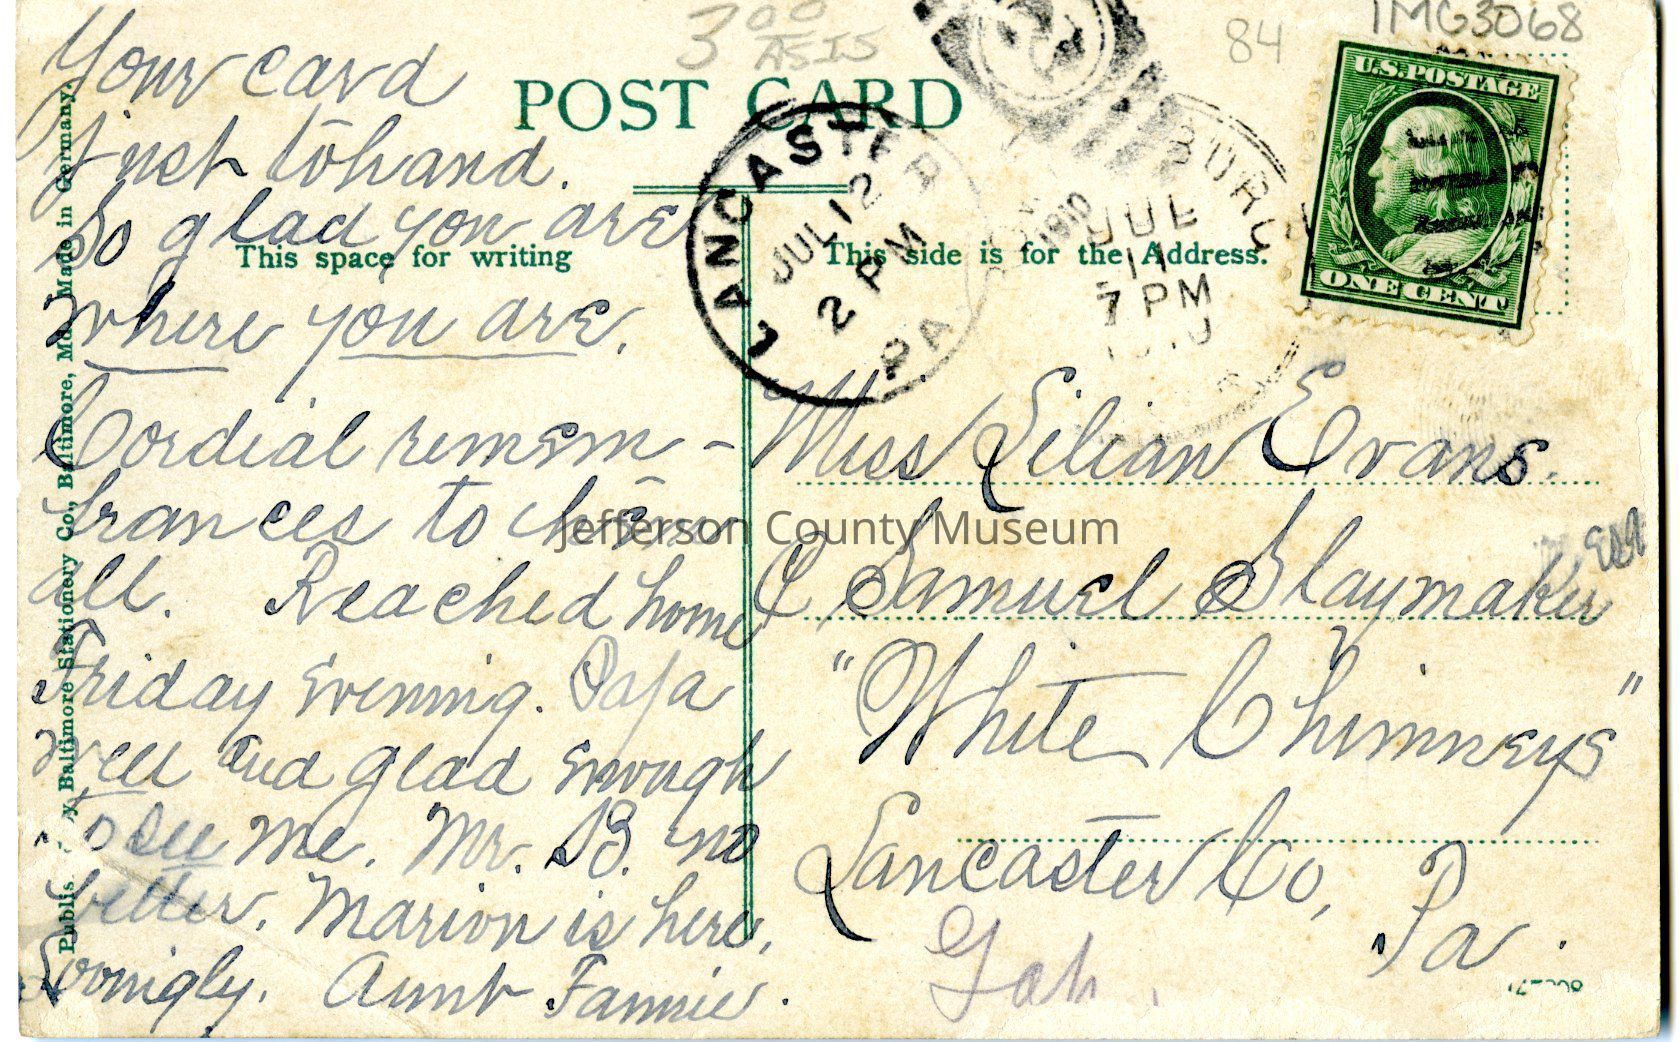 3 00
AS IS
84
IMG3068
POST CARD
U.S. POSTAGE
ONE CENT
LANCASTER
JUL 12
2 PM
PA
1910
BURG
11
7 PM
This space for writing
This side is for the Address.
Made in Germany.
Baltimore Stationery Co., Baltimore, Md.
Your card
just to hand.
So glad you are
where you are.
Cordial remem-
brances to them
all. Reached home
Friday evening. Papa
well and glad enough
to see me. Mr. B. no
better. Marion is here,
Lovingly. Aunt Fannie.
Miss Lilian Evans.
C Samuel Slaymaker
"White Chimneys"
Lancaster Co, Pa.
Gah.
Jefferson County Museum